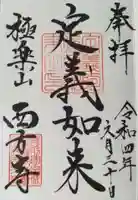 奉拝
令和四年
六月三十日
定義如来
極楽山
西方寺